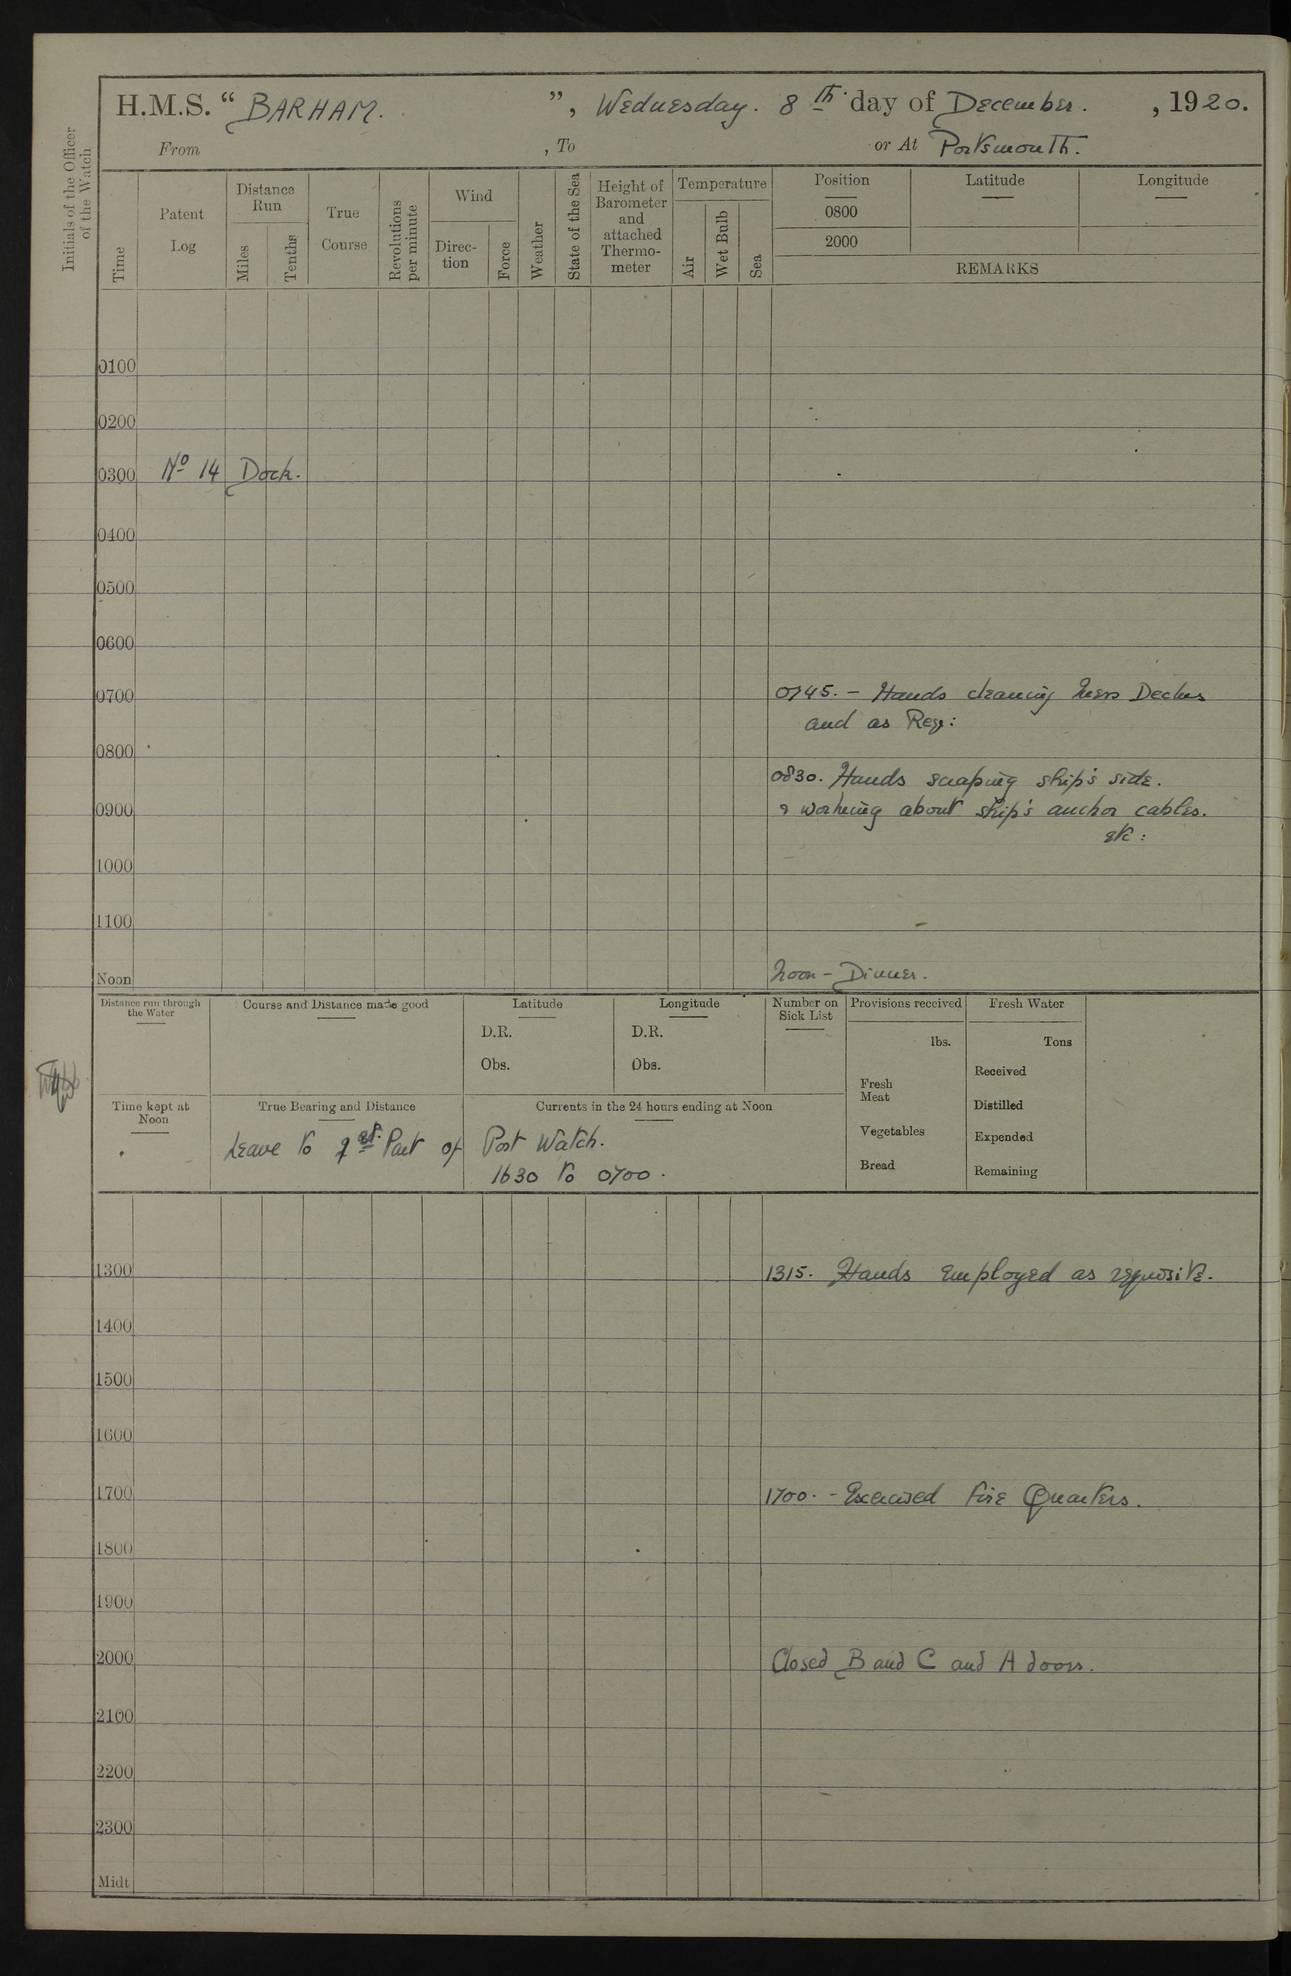 H.M.S. “ BARHAM. ”, Wednesday. 8th day of December. , 1920.
From , To or At Portsmouth.
Initials of the Officer of the Watch
Time
Patent Log
Distance Run
Miles
Tenths
True Course
Revolutions per minute
Wind
Direc-tion
Force
Weather
State of the Sea
Height of Barometer and attached Thermo-meter
Temperature
Air
Wet Bulb
Sea
Position
Latitude
Longitude
0800
2000
REMARKS
0100
0200
0300 No 14 Dock.
0400
0500
0600
0700 0745. – Hands cleaning Mess Decks
and as Req:
0800
0830. Hands scraping ship's side.
0900 & working about ship's anchor cables.
etc:
1000
1100
Noon Noon – Dinner.
Distance run through the Water
Course and Distance made good
Latitude
D.R.
Obs.
Longitude
D.R.
Obs.
Number on Sick List
Provisions received
lbs.
Fresh Meat
Vegetables
Bread
Fresh Water
Tons
Received
Distilled
Expended
Remaining
Time kept at Noon
True Bearing and Distance
Currents in the 24 hours ending at Noon
Leave to 1st Part of Port Watch.
1630 to 0700.
1300 1315. Hands employed as requisite.
1400
1500
1600
1700 1700. – Exercised Fire Quarters.
1800
1900
2000 Closed B and C and A doors.
2100
2200
2300
Midt